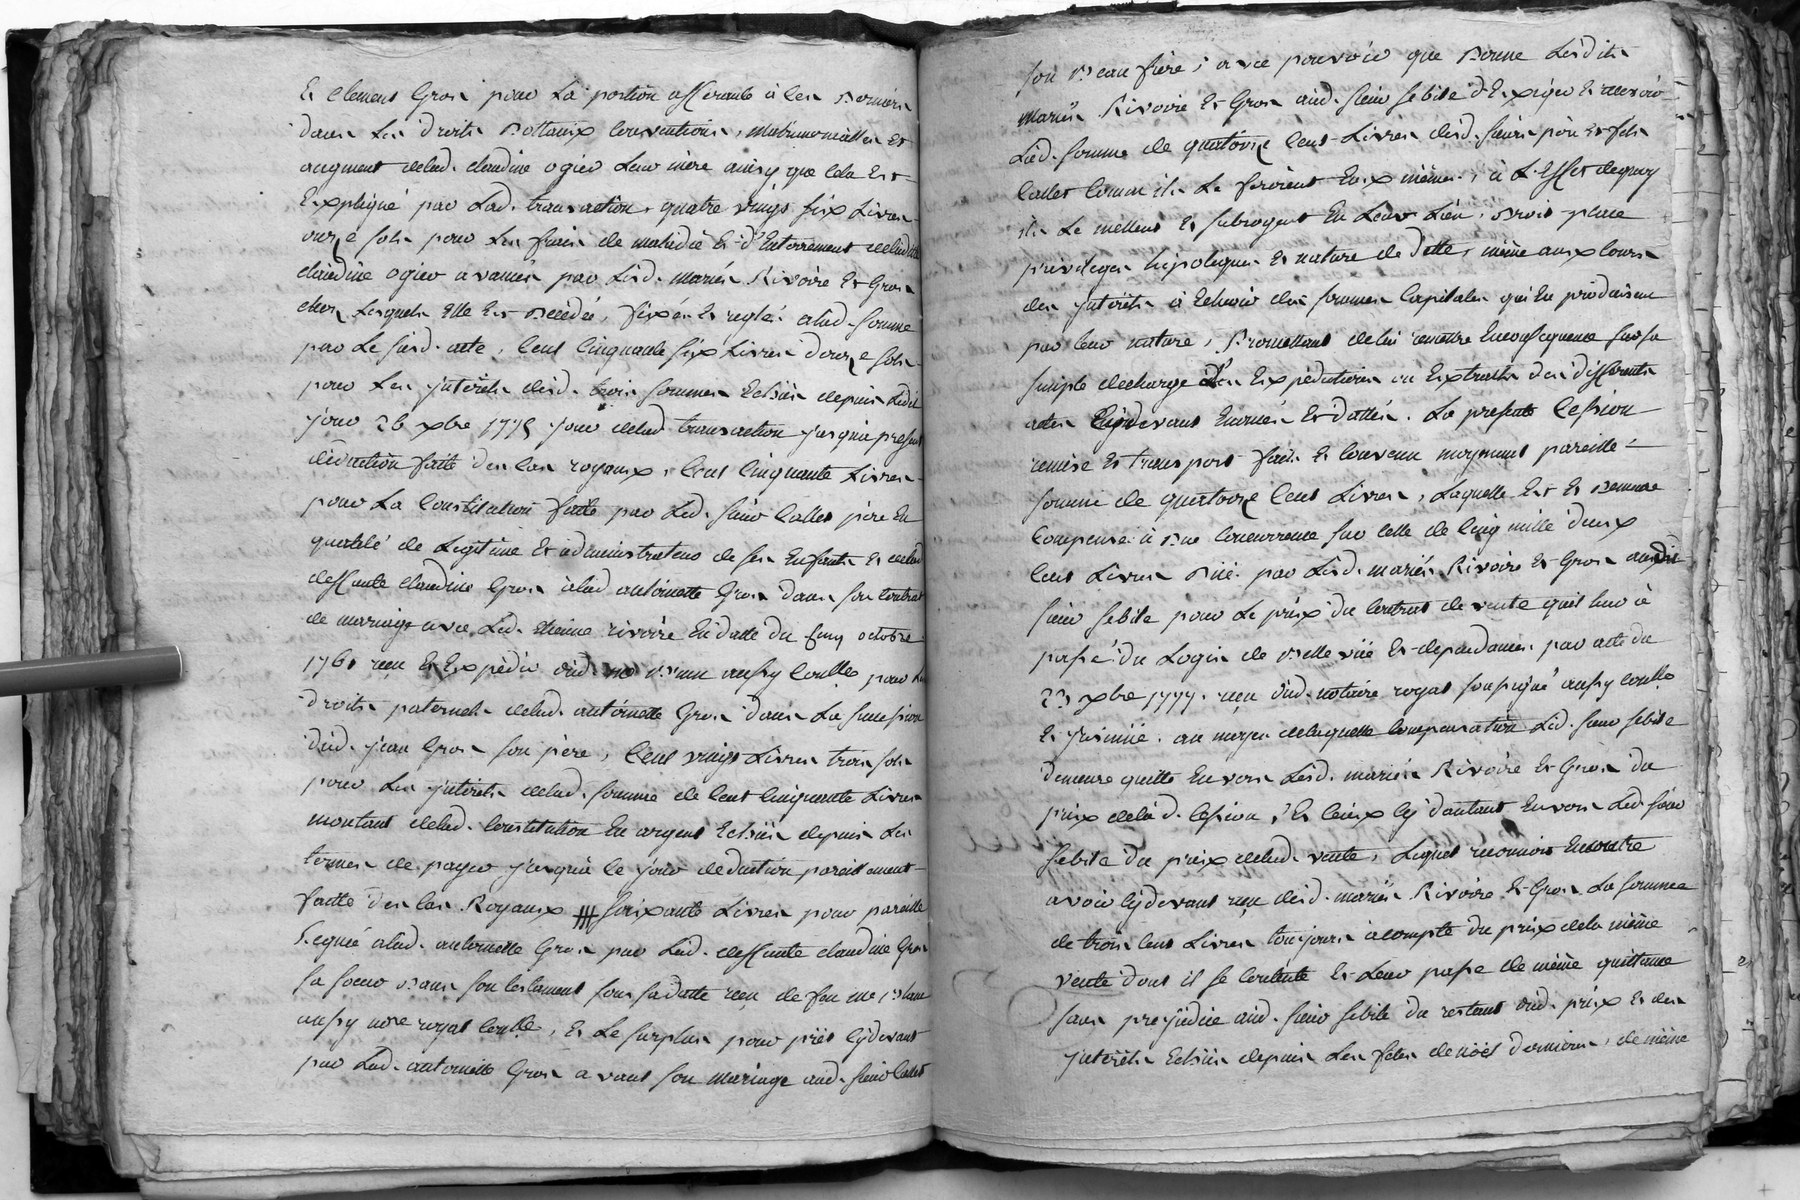 Et Clement Gros pour La portion afferante à Ces Derniers
dans Les droits Dottaux Conventions, Matrimonialles Et
augment delad. claudine ogier Leur mere ainsy que Cela Est
Expliqué par Lad. transaction, quatre vingt six Livres
onze sols pour Les frais de maladie Et d'Enterrement delad
claudine ogier avancés par Lesd. mariés Rivoire Et Gros
chez Lesquels Elle Est Decédée, fixés Et reglé alad. somme
par Le susd. acte, Cent Cinquante six Livres douze sols
pour Les jnterets desd. trois sommes Echus depuis Ledit
jour 26 xbre 1775 jour delad. transaction jusqu'à present
déduction faite des Cas royaux, Cent Cinquante Livres
pour La Constitution faite par Led. sieur Callet père En
qualité de Legitime Et administrateur de ses Enfants Et delad
deffunte Claudine Gros àlad antoinette Gros dans son Contrat
de mariage avec Led. Etienne rivoire En datte du Cinq octobre
1761 reçu Et Expédié dud. me Brun aussy Conlle, pour Les
droits paternels delad. antoinette Gros dans La succession
dud. jean Gros son père, Cent vingt Livres trois sols
pour Les jnterets delad. somme de Cent Cinquante Livres
montant delad. Constitution En argent Echus depuis Les
termes de payer jusqu'à Ce jour deduction pareillement
faitte des Cas Royaux soixante Livres pour pareille
Leguée alad. antoinette Gros par Lad. deffunte claudine Gros
sa soeur Dans son testament sous sa datte reçu de feu me
aussy nore royal Conlle, Et Le surplus pour prêt Cydevant
par Lad. antoinette Gros avant son Mariage aud. sieur Callet
son Beau frere, avec pouvoir que Donne Lesdits
Mariés Rivoire Et Gros aud. sieur sebile d'Exiger Et recevoir
Lad. somme de quatorze Cent Livres desd. sieurs père Et fils
Callet Comm ils Le feroient Eux mêmes, à L'Effet dequoy
ils Le mettent Et subrogent En Leur Lieu, Droit place
privileges hipoteques Et nature de Dette, même aux Cours
des jnterets à Echeoir des sommes Capitales qui En produisent
par leur nature, Promettant delui remettre Enconsequence sur sa
simple decharge Les Expéditions ou Extraits des differents
actes Cydevant Enoncés Et dattés. La presente Cession
remise Et transport faite Et Convenu moyennant pareille
somme de quatorze Cent Livres, Laquelle Est Et Demeure
Compensé à Due Concurrence sur Celle de Cinq mille deux
Cent Livres Due par Lesd. mariés Rivoire Et Gros audit
sieur sebile pour Le prix du Contrat de vente qu'il leur à
passé du Logis de Belle vüe Et dependances par acte du
23 xbre 1777. reçu dud. notaire royal soussigné aussy Conllé
Et jnsinüé. au moyen delaquelle Compensation Led. sieur sebile
demeure quitte Envers Lesd. mariés Rivoire Et Gros du
prix delad. Cession, Et Ceux Cy d'autant Envers Led. sieur
sebile du prix delad. vente, Lequel reconnoit Encontre
avoir Cydevant reçu desd. mariés Rivoire Et Gros La somme
de trois Cent Livres toujours àcompte du prix dela même
vente dont il se Contente Et Leur passe de même quittance
sans prejudice aud. sieur sebile du restant dud. prix Et des
jnterets Echus depuis Les fetes de noël dernieres, de même